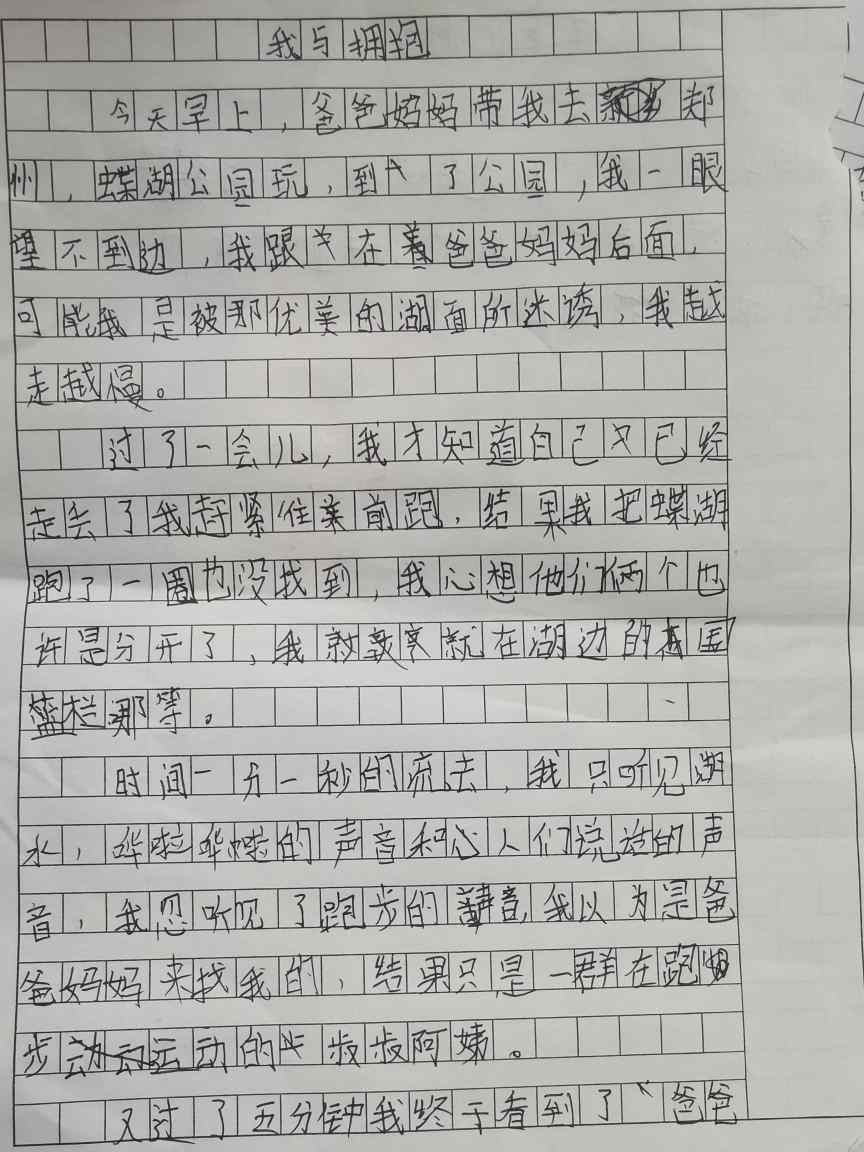 我与拥抱
今天早上，爸爸妈妈带我去郑
州，蝶湖公园玩，到了公园，我一眼
望不到边，我跟在着爸爸妈妈后面，
可能我是被那优美的湖面所迷诱，我越
走越慢。
过了一会儿，我才知道自己已经
走丢了我赶紧往前跑，结果我把蝶湖
跑了一圈也没找到，我心想他们俩个也
许是分开了，我就在湖边的
蓝栏那等。
时间一分一秒的流去，我只听见湖
水，哗啦哗啦的声音和人们说话的声
音，我忽听见了跑步的声音，我以为是爸
爸妈妈来找我的，结果只是一群在跑
步运动的叔叔阿姨。
又过了五分钟我终于看到了爸爸